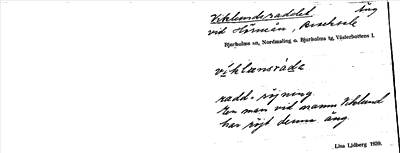 Viklundsraddet Äng
vid Hörnån,
Bjurholms sn, Nordmaling o. Bjurholms tg, Västerbottens l.
viklansráda
radd = röjning.
En man vid namn Viklund
har röjt denna äng.
Lisa Lidberg 1939.